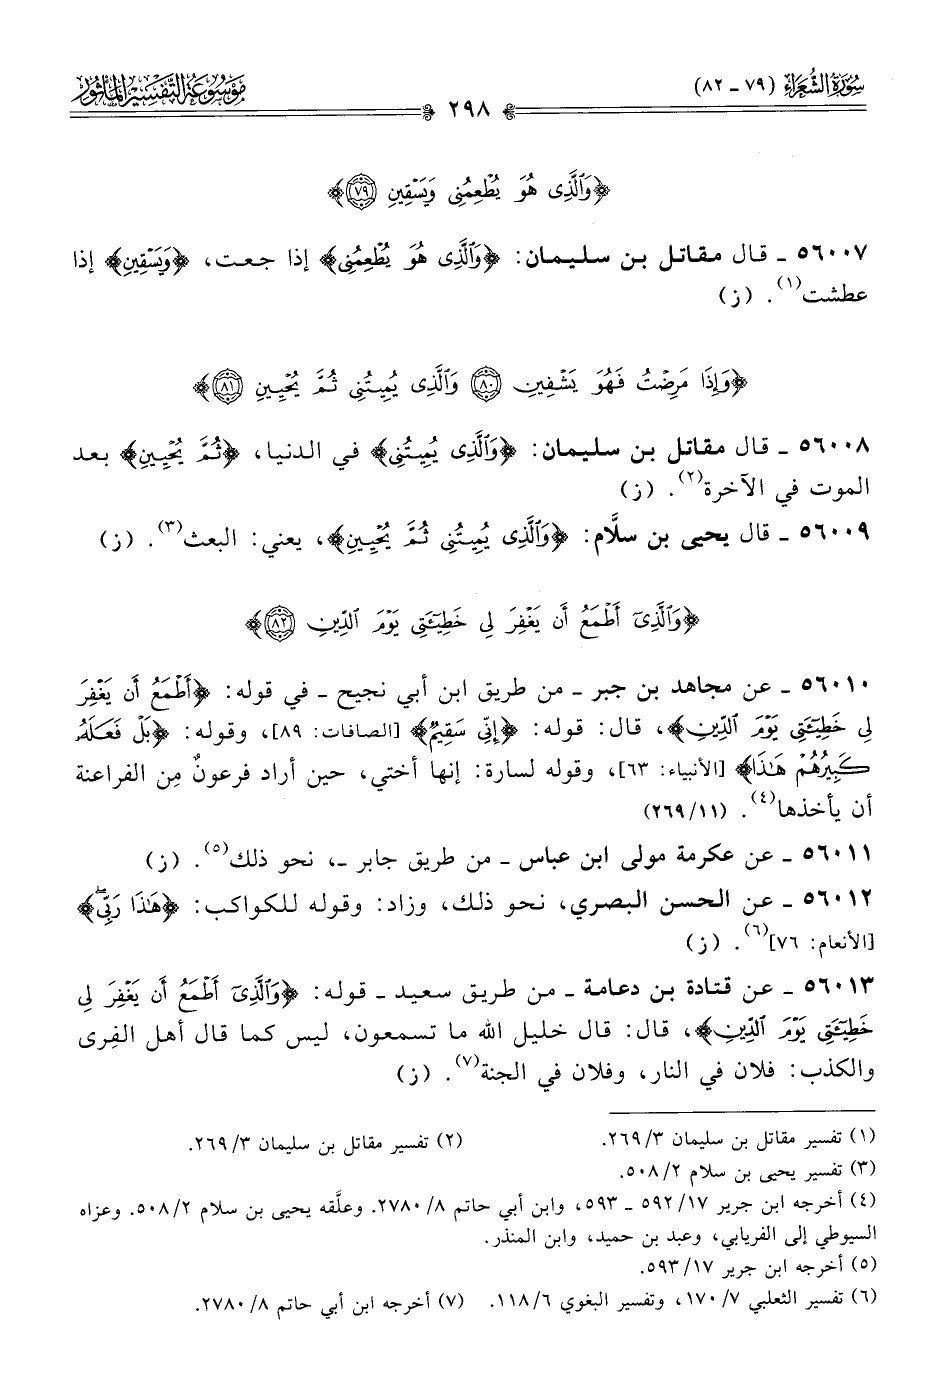 سُورَةُ الشُّعَرَاءِ (٧٩ - ٨٢)
٢٩٨
مَوْسُوعَةُ التَّفْسِيرِ المَأْثُور
﴿وَٱلَّذِى هُوَ يُطْعِمُنِى وَيَسْقِينِ ۝٧٩﴾
٥٦٠٠٧ - قال مقاتل بن سليمان: ﴿وَٱلَّذِى هُوَ يُطْعِمُنِى﴾ إذا جعت، ﴿وَيَسْقِينِ﴾ إذا
عطشت(١). (ز)
﴿وَإِذَا مَرِضْتُ فَهُوَ يَشْفِينِ ۝٨٠ وَٱلَّذِى يُمِيتُنِى ثُمَّ يُحْيِينِ ۝٨١﴾
٥٦٠٠٨ - قال مقاتل بن سليمان: ﴿وَٱلَّذِى يُمِيتُنِى﴾ في الدنيا، ﴿ثُمَّ يُحْيِينِ﴾ بعد
الموت في الآخرة(٢). (ز)
٥٦٠٠٩ - قال يحيى بن سلَّام: ﴿وَٱلَّذِى يُمِيتُنِى ثُمَّ يُحْيِينِ﴾، يعني: البعث(٣). (ز)
﴿وَٱلَّذِىٓ أَطْمَعُ أَن يَغْفِرَ لِى خَطِيٓـَٔتِى يَوْمَ ٱلدِّينِ ۝٨٢﴾
٥٦٠١٠ - عن مجاهد بن جبر - من طريق ابن أبي نجيح - في قوله: ﴿أَطْمَعُ أَن يَغْفِرَ
لِى خَطِيٓـَٔتِى يَوْمَ ٱلدِّينِ﴾، قال: قوله: ﴿إِنِّى سَقِيمٌ﴾ [الصافات: ٨٩]، وقوله: ﴿بَلْ فَعَلَهُۥ
كَبِيرُهُمْ هَٰذَا﴾ [الأنبياء: ٦٣]، وقوله لسارة: إنها أختي، حين أراد فرعونٌ مِن الفراعنة
أن يأخذها(٤). (١١/٢٦٩)
٥٦٠١١ - عن عكرمة مولى ابن عباس - من طريق جابر -، نحو ذلك(٥). (ز)
٥٦٠١٢ - عن الحسن البصري، نحو ذلك، وزاد: وقوله للكواكب: ﴿هَٰذَا رَبِّىۖ﴾
[الأنعام: ٧٦](٦). (ز)
٥٦٠١٣ - عن قتادة بن دعامة - من طريق سعيد - قوله: ﴿وَٱلَّذِىٓ أَطْمَعُ أَن يَغْفِرَ لِى
خَطِيٓـَٔتِى يَوْمَ ٱلدِّينِ﴾، قال: قال خليل الله ما تسمعون، ليس كما قال أهل الفِرى
والكذب: فلان في النار، وفلان في الجنة(٧). (ز)
(١) تفسير مقاتل بن سليمان ٣/٢٦٩. (٢) تفسير مقاتل بن سليمان ٣/٢٦٩.
(٣) تفسير يحيى بن سلام ٢/٥٠٨.
(٤) أخرجه ابن جرير ١٧/٥٩٢ - ٥٩٣، وابن أبي حاتم ٨/٢٧٨٠. وعلَّقه يحيى بن سلام ٢/٥٠٨. وعزاه
السيوطي إلى الفريابي، وعبد بن حميد، وابن المنذر.
(٥) أخرجه ابن جرير ١٧/٥٩٣.
(٦) تفسير الثعلبي ٧/١٧٠، وتفسير البغوي ٦/١١٨. (٧) أخرجه ابن أبي حاتم ٨/٢٧٨٠.